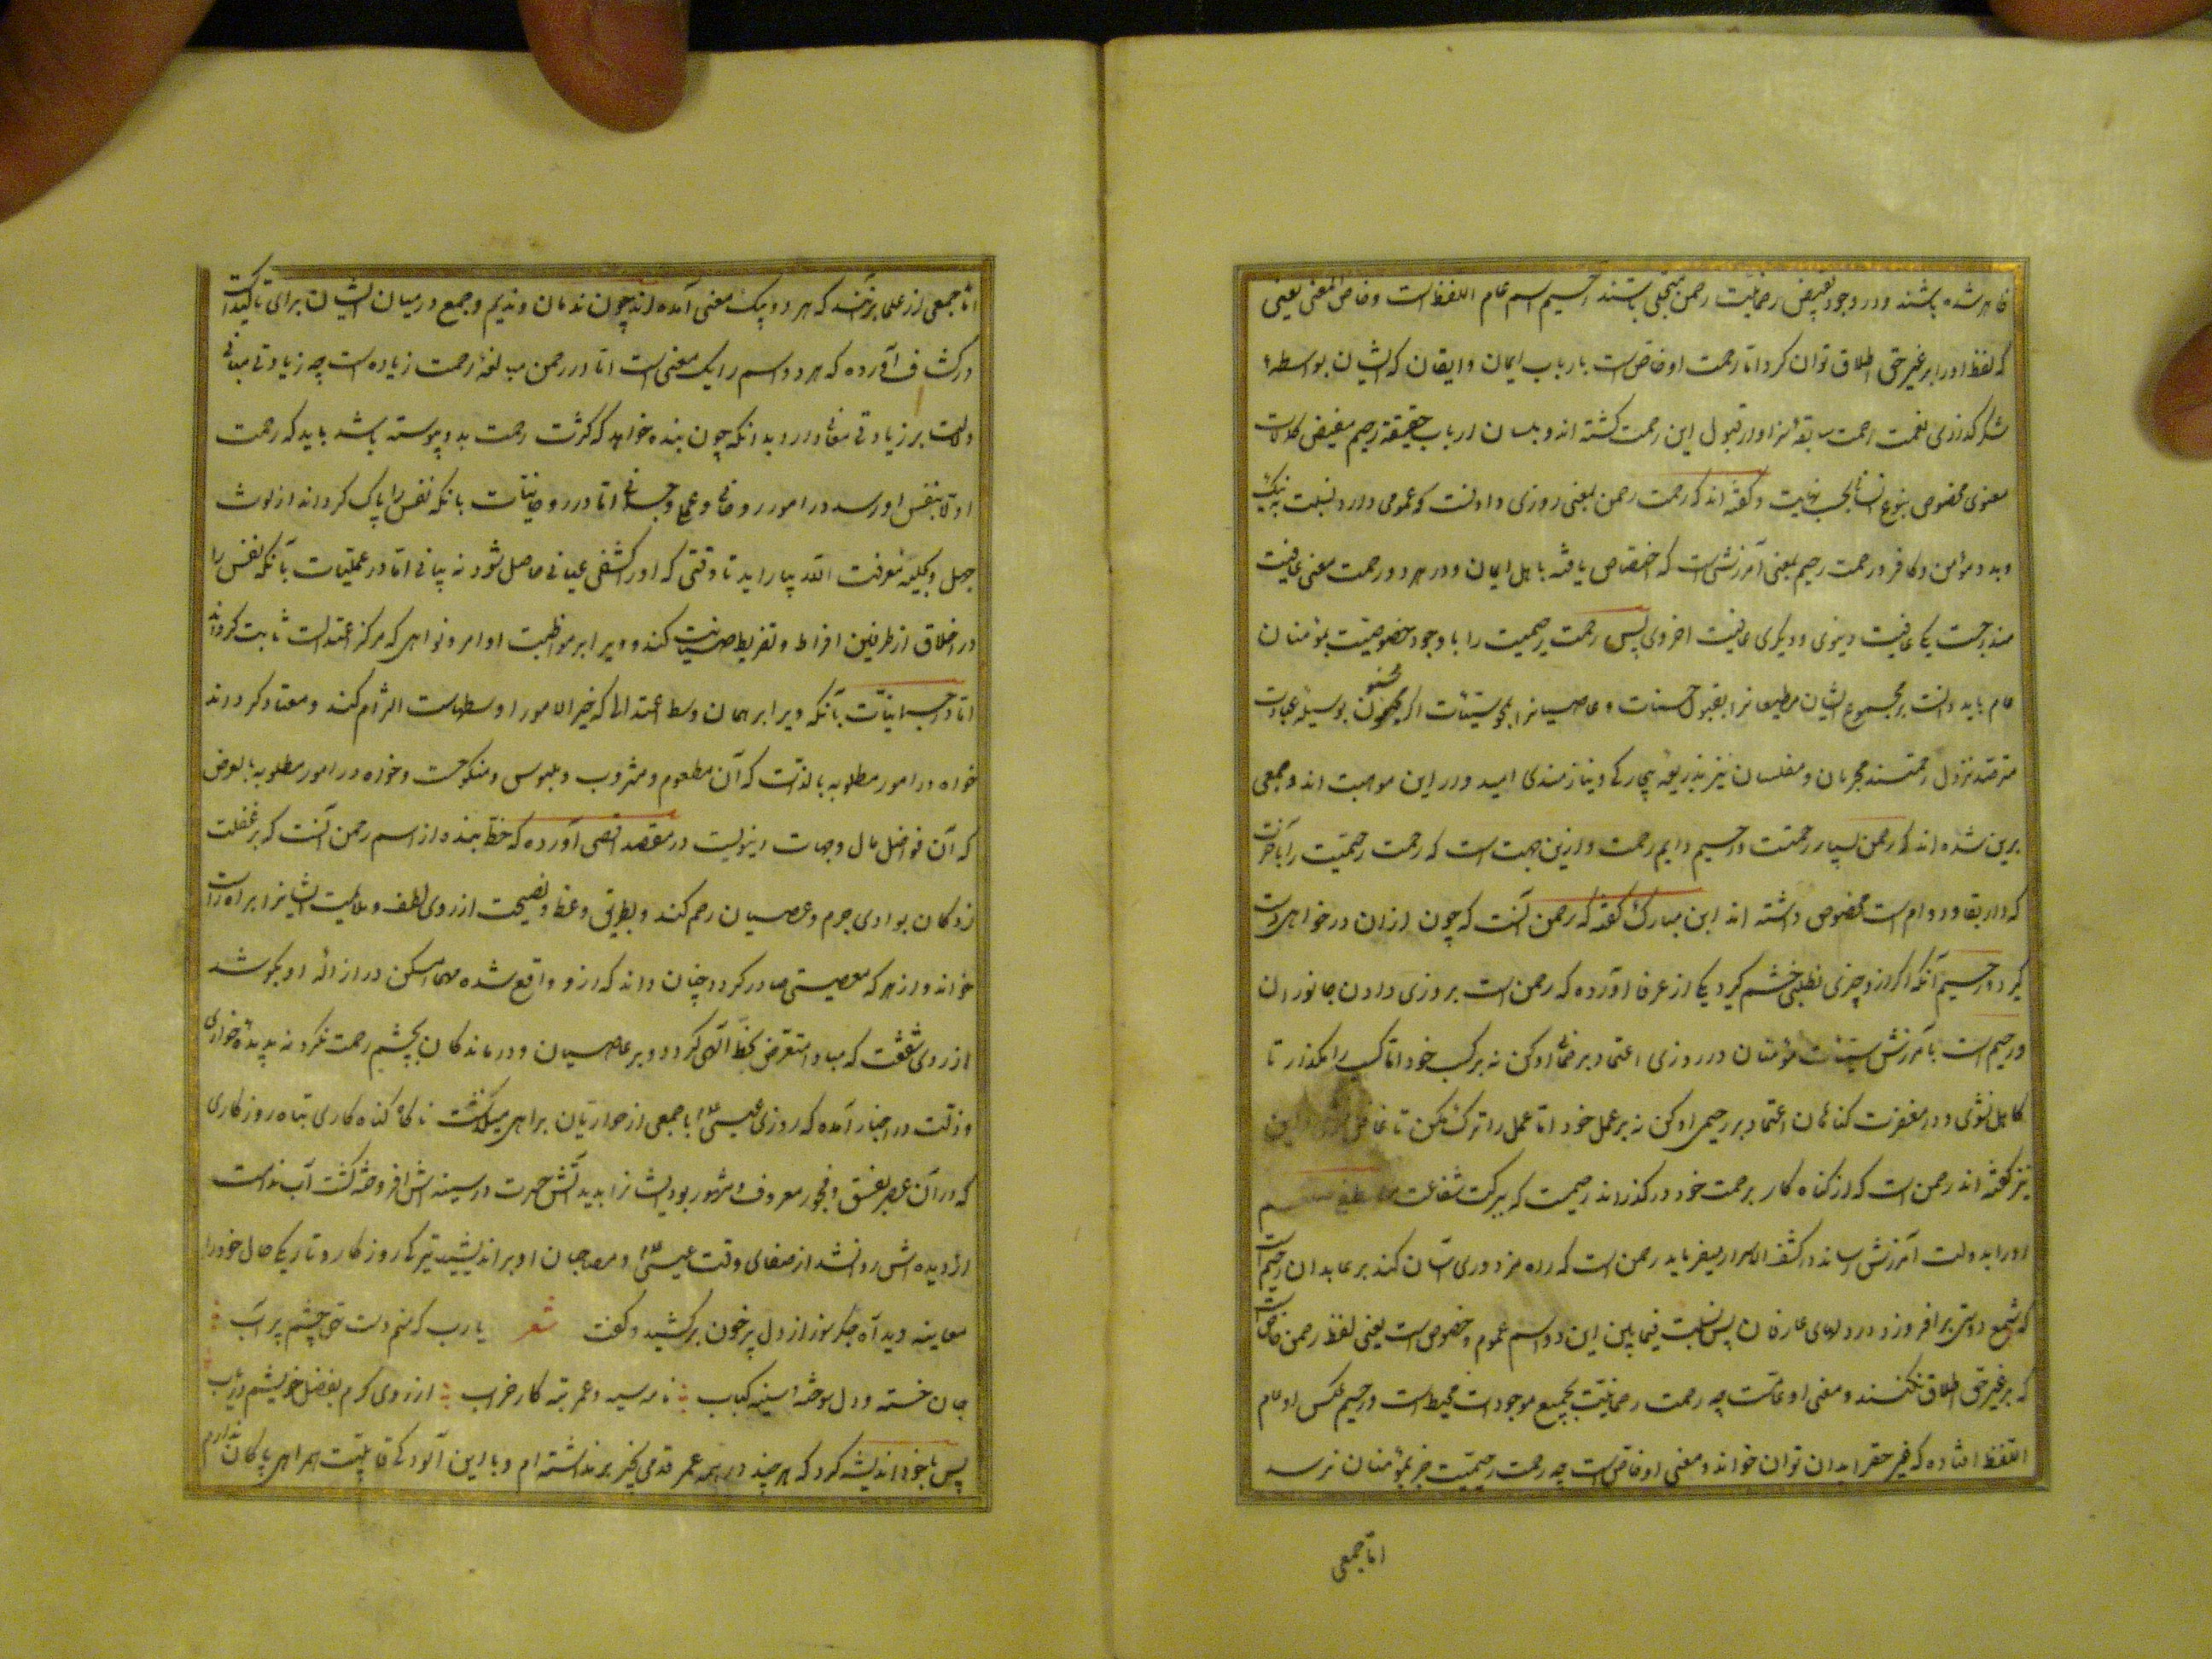 ظاهر شده باشند و در وجود بفیض رحمانیت رحمن متجلی باشند رحیم اسم عام اللفظ است و خاص المعنی یعنی
که لفظ او را بر غیر حق اطلاق توان کرد اما رحمت او خاص است بارباب ایمان و ایقان که ایشان بواسطهٔ
شکر گذاری نعمت رحمت سابقه سزاوار قبول این رحمت گشته اند و بلسان ارباب حقیقة رحیم مفیض کمالات
معنوی مخصوص بنوع انسانی بحسب نهایت و گفته اند که رحمت رحمن بمعنی روزی دادنست که عمومی دارد نسبت به نیک
و بد و مؤمن و کافر و رحمت رحیم بمعنی آمرزش است که اختصاص یافته باهل ایمان و در هر دو رحمت معنی عافیت
مندرجست یکی عافیت دنیوی و دیگری عافیت اخروی پس رحمت رحیمیت را با وجود خصوصیت بمؤمنان
عام باید دانست بر مجموع ایشان مطیعانرا بقبول حسنات و عاصیانرا بمحو سیئات اگر محسنون بوسیلهٔ عبادت
مترصد نزول رحمتند مجرمان و مفلسان نیز بذریعهٔ بیچارگی و نیازمندی امیدوار این موهبت اند و جمعی
برین شده اند که رحمن بسیار رحمتست و رحیم دایم رحمت و ازین جهت است که رحمت رحیمیت را بآخرت
که دار بقا و دوام است مخصوص داشته اند ابن مبارک گفته که رحمن آنست که چون ازان درخواهی
گیرد و رحیم آنکه اگر ازو چیزی نطلبی خشم گیرد یکی از عرفا آورده که رحمن است بروزی دادن جانوران
و رحیم است بآمرزش سیئات مؤمنان در روزی اعتماد بر رحمانی او کن نه بر کسب خود اما کسب را مگذار تا
کاهل نشوی و در مغفرت گناهان اعتماد بر رحیمی او کن نه بر عمل خود اما عمل را ترک مکن تا
نیز گفته اند رحمن است که از گناه کار برحمت خود درگذراند رحیمست که ببرکت شفاعت
او را بدولت آمرزش رساند در کشف الاسرار میفرماید رحمن است که راه مزدوری آسان کند بر عابدان رحیم است
که شمع دوستی برافروزد در دلهای عارفان پس نسبت فیما بین این دو اسم عموم و خصوص است یعنی لفظ رحمن خاص است
که بر غیر حق اطلاق نکنند و معنی او عامست چه رحمت رحمانیت بجمیع موجودات محیط است و رحیم عکس او عام
اللفظ افتاده که غیر حق را بدان توان خواند و معنی او خاص است چه رحمت رحیمیت جز بمؤمنان نرسد
اما جمعی
اما جمعی از علما برآنند که هر دو بیک معنی آمده اند چون ندمان و ندیم و جمع در میان ایشان برای تأکید است
در کشاف آورده که هر دو اسم را یک معنی است اما در رحمن مبالغهٔ رحمت زیاده است چه زیادتی مبانی
دلالت بر زیادتی معانی دارد و بدانکه چون بنده خواهد که کثرت رحمت بدو پیوسته باشد باید که رحمت
اولا بنفس او رسد در امور روحانی و عملی و جسمانی اما در روحانیات بآنکه نفس را پاک گرداند از لوث
جهل و بحلیهٔ معرفت الله بیاراید تا وقتی که او را کشفی عیانی حاصل شود نه بیانی اما در عملیات بآنکه نفس را
در اخلاق از طرفین افراط و تفریط صیانت کند و ویرا بر مواظبت اوامر و نواهی که مرکز اعتدالست ثابت گرداند
اما در جسمانیات بآنکه ویرا بر همان وسط اعتدالی که خیر الامور اوسطهاست الزام کند و معتاد گرداند
خواه در امور مطلوبه بالذات که آن مطعوم و مشروب و ملبوس و منکوحست و خواه در امور مطلوبه بالعرض
که آن فواضل مال و جهات دنیویست در مقصد اقصی آورده که حظ بنده از اسم رحمن آنست که بر غفلت
زدگان بوادی جرم و عصیان رحم کند و بطریق وعظ و نصیحت از روی لطف و ملایمت ایشانرا براه راست
خواند و از هر که معصیتی صادر گردد چنان داند که ازو واقع شده مهما امکن در ازالهٔ او بکوشد
از روی شفقت که مبادا متعرض سخط الهی گردد و بر عاصیان و درماندگان بچشم رحمت نگرد نه بدیدهٔ خواری
و زلت در اخبار آمده که روزی عیسی با جمعی از حواریان براهی میگذشت ناگاه گناه کاری تباه روزگاری
که در آن عصر بفسق و فجور معروف و مشهور بود ایشانرا بدید آتش حسرت در سینه اش افروخته گشت آب ندامت
از دیده اش روان شد از صفای وقت عیسی و مصاحبان او براندیشید تیرگی روزگار و تاریکی حال خود را
معاینه دید آه جگر سوز از دل پر خون برکشید و گفت شعر یا رب که منم دست تهی چشم پر آب
جان خسته و دل سوخته و سینه کباب نامه سیه و عمر تبه کار خراب از روی کرم بفضل خویشم دریاب
پس با خود اندیشه کرد که هر چند در همه عمر قدمی بخیر برنداشته ام و با این آلودگی قابلیت همراهی پاکان ندارم